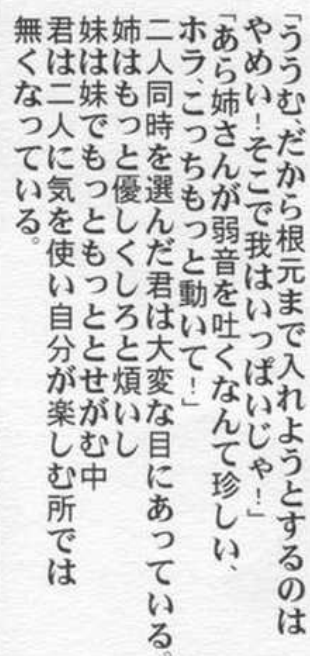 「ううむ、だから根元まで入れようとするのは
やめい！そこで我はいっぱいじゃ！」
「あら姉さんが弱音を吐くなんて珍しい、
ホラ、こっちもっと動いて！」
二人同時を選んだ君は大変な目にあっている。
姉はもっと優しくしろと煩いし
妹は妹でもっともっととせがむ中
君は二人に気を使い自分が楽しむ所では
無くなっている。